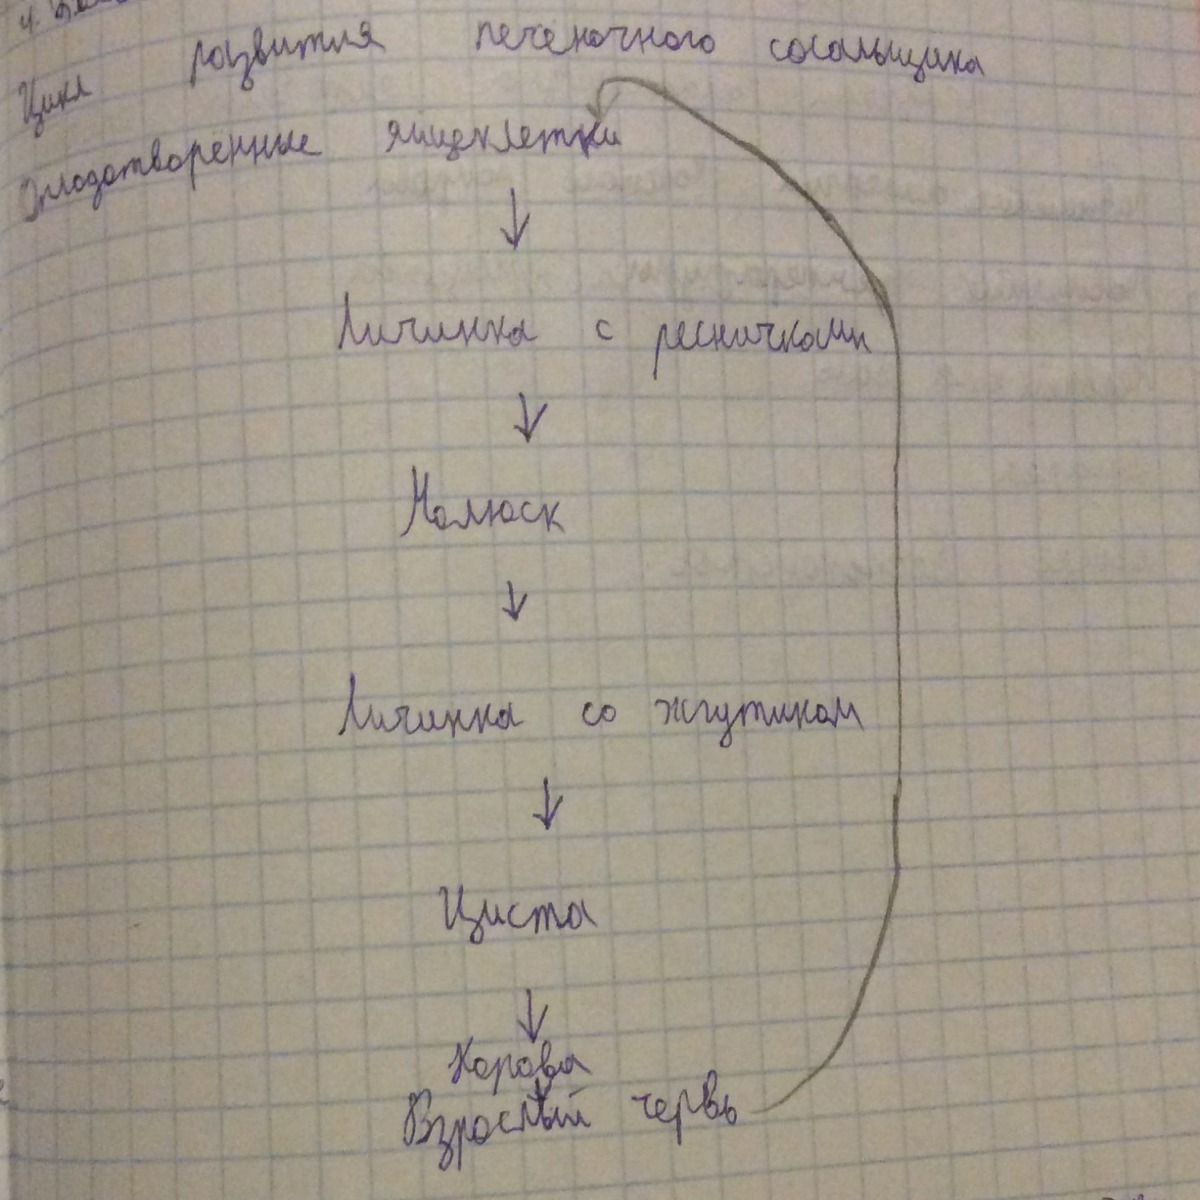 Цикл развития печеночного сосальщика
Оплодотворенные яицеклетки
Личинка с ресничками
Молюск
Личинка со жгутиком
Циста
Корова
Взрослый червь